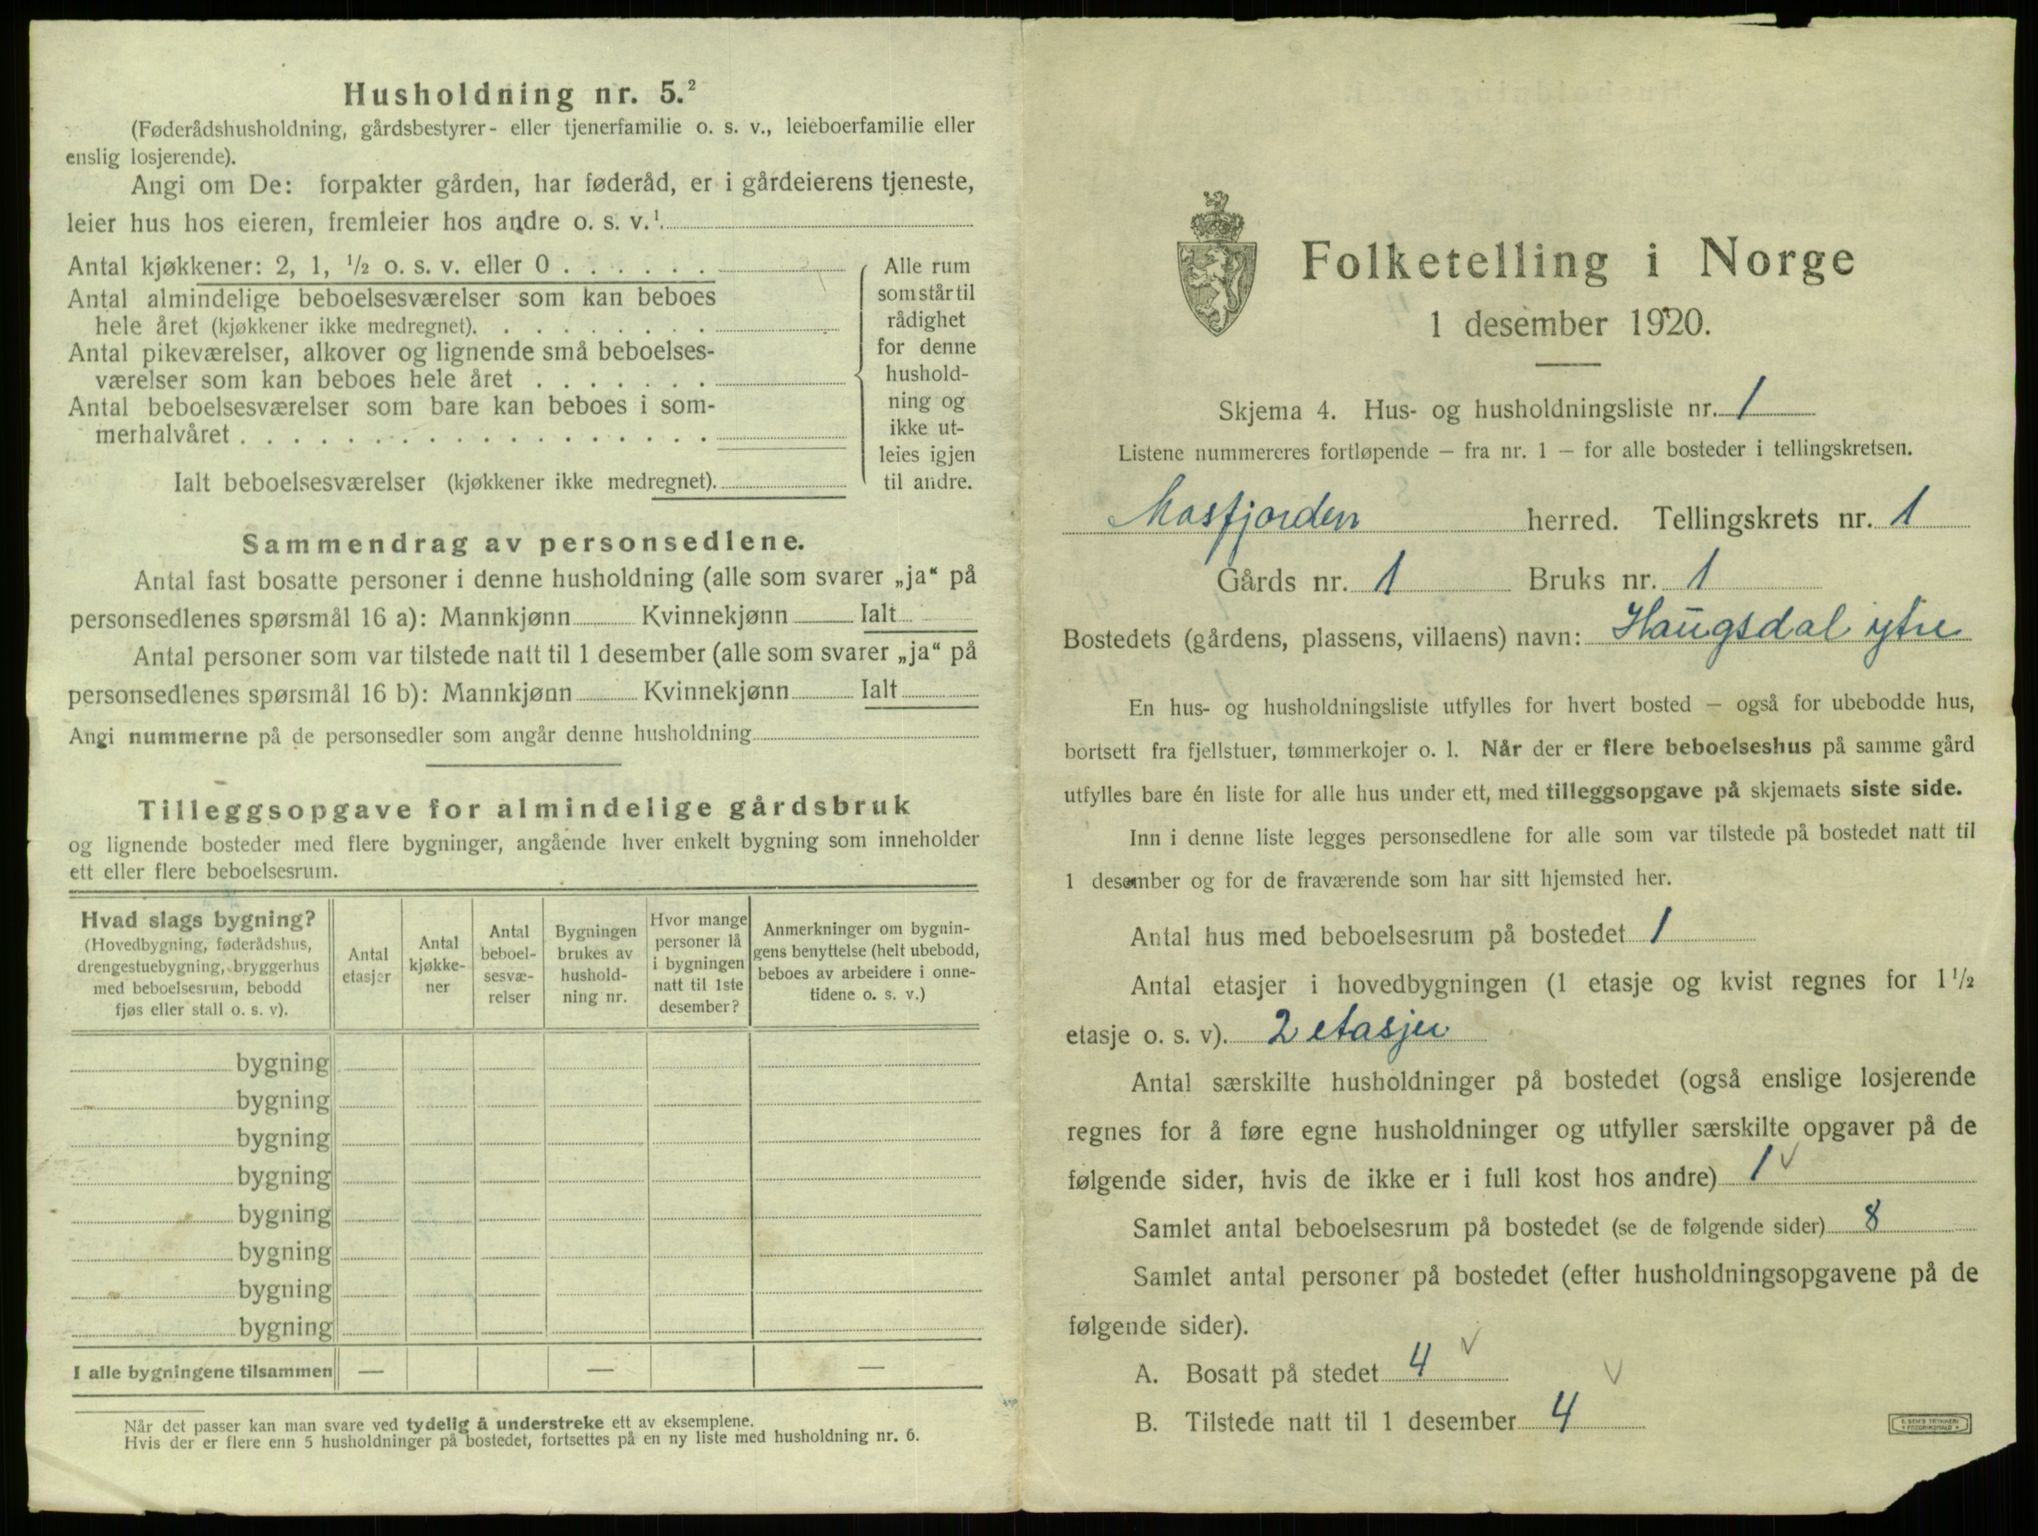 Husholdning nr. 5.²
(Føderådshusholdning, gårdsbestyrer- eller tjenerfamilie o. s. v., leieboerfamilie eller
enslig losjerende).
Angi om De: forpakter gården, har føderåd, er i gårdeierens tjeneste,
leier hus hos eieren, fremleier hos andre o. s. v.¹
Antal kjøkkener: 2, 1, ½ o. s. v. eller 0 . . . . . .
Antal almindelige beboelsesværelser som kan beboes
hele året (kjøkkener ikke medregnet). . . . . . . . .
Antal pikeværelser, alkover og lignende små beboelses-
værelser som kan beboes hele året . . . . . . .
Antal beboelsesværelser som bare kan beboes i som-
merhalvåret . . . . . . . . . . . . . . . . . .
Ialt beboelsesværelser (kjøkkener ikke medregnet).
Alle rum
som står til
rådighet
for denne
hushold-
ning og
ikke ut-
leies igjen
til andre.
Sammendrag av personsedlene.
Antal fast bosatte personer i denne husholdning (alle som svarer „ja“ på
personsedlenes spørsmål 16 a): Mannkjønn Kvinnekjønn Ialt
Antal personer som var tilstede natt til 1 desember (alle som svarer „ja“ på
personsedlenes spørsmål 16 b): Mannkjønn Kvinnekjønn Ialt
Angi nummerne på de personsedler som angår denne husholdning
Tilleggsopgave for almindelige gårdsbruk
og lignende bosteder med flere bygninger, angående hver enkelt bygning som inneholder
ett eller flere beboelsesrum.
Hvad slags bygning?
(Hovedbygning, føderådshus,
drengestuebygning, bryggerhus
med beboelsesrum, bebodd
fjøs eller stall o. s. v).
Antal
etasjer
Antal
kjøkke-
ner
Antal
beboel-
sesvæ-
relser
Bygningen
brukes av
hushold-
ning nr.
Hvor mange
personer lå
i bygningen
natt til 1ste
desember?
Anmerkninger om bygnin-
gens benyttelse (helt ubebodd,
beboes av arbeidere i onne-
tidene o. s. v.)
bygning
bygning
bygning
bygning
bygning
bygning
bygning
bygning
I alle bygningene tilsammen — — —
Når det passer kan man svare ved tydelig å understreke ett av eksemplene.
Hvis der er flere enn 5 husholdninger på bostedet, fortsettes på en ny liste med husholdning nr. 6.
Folketelling i Norge
1 desember 1920.
Skjema 4. Hus- og husholdningsliste nr. 1
Listene nummereres fortløpende – fra nr. 1 – for alle bosteder i tellingskretsen.
Masfjorden herred. Tellingskrets nr. 1
Gårds nr. 1 Bruks nr. 1
Bostedets (gårdens, plassens, villaens) navn: Haugsdal ytre
En hus- og husholdningsliste utfylles for hvert bosted – også for ubebodde hus,
bortsett fra fjellstuer, tømmerkojer o. l. Når der er flere beboelseshus på samme gård
utfylles bare én liste for alle hus under ett, med tilleggsopgave på skjemaets siste side.
Inn i denne liste legges personsedlene for alle som var tilstede på bostedet natt til
1 desember og for de fraværende som har sitt hjemsted her.
Antal hus med beboelsesrum på bostedet 1
Antal etasjer i hovedbygningen (1 etasje og kvist regnes for 1 ½
etasje o. s. v). 2 etasjer
Antal særskilte husholdninger på bostedet (også enslige losjerende
regnes for å føre egne husholdninger og utfyller særskilte opgaver på de
følgende sider, hvis de ikke er i full kost hos andre) 1 ✓
Samlet antal beboelsesrum på bostedet (se de følgende sider) 8
Samlet antal personer på bostedet (efter husholdningsopgavene på de
følgende sider).
A. Bosatt på stedet 4 ✓
B. Tilstede natt til 1 desember 4 ✓